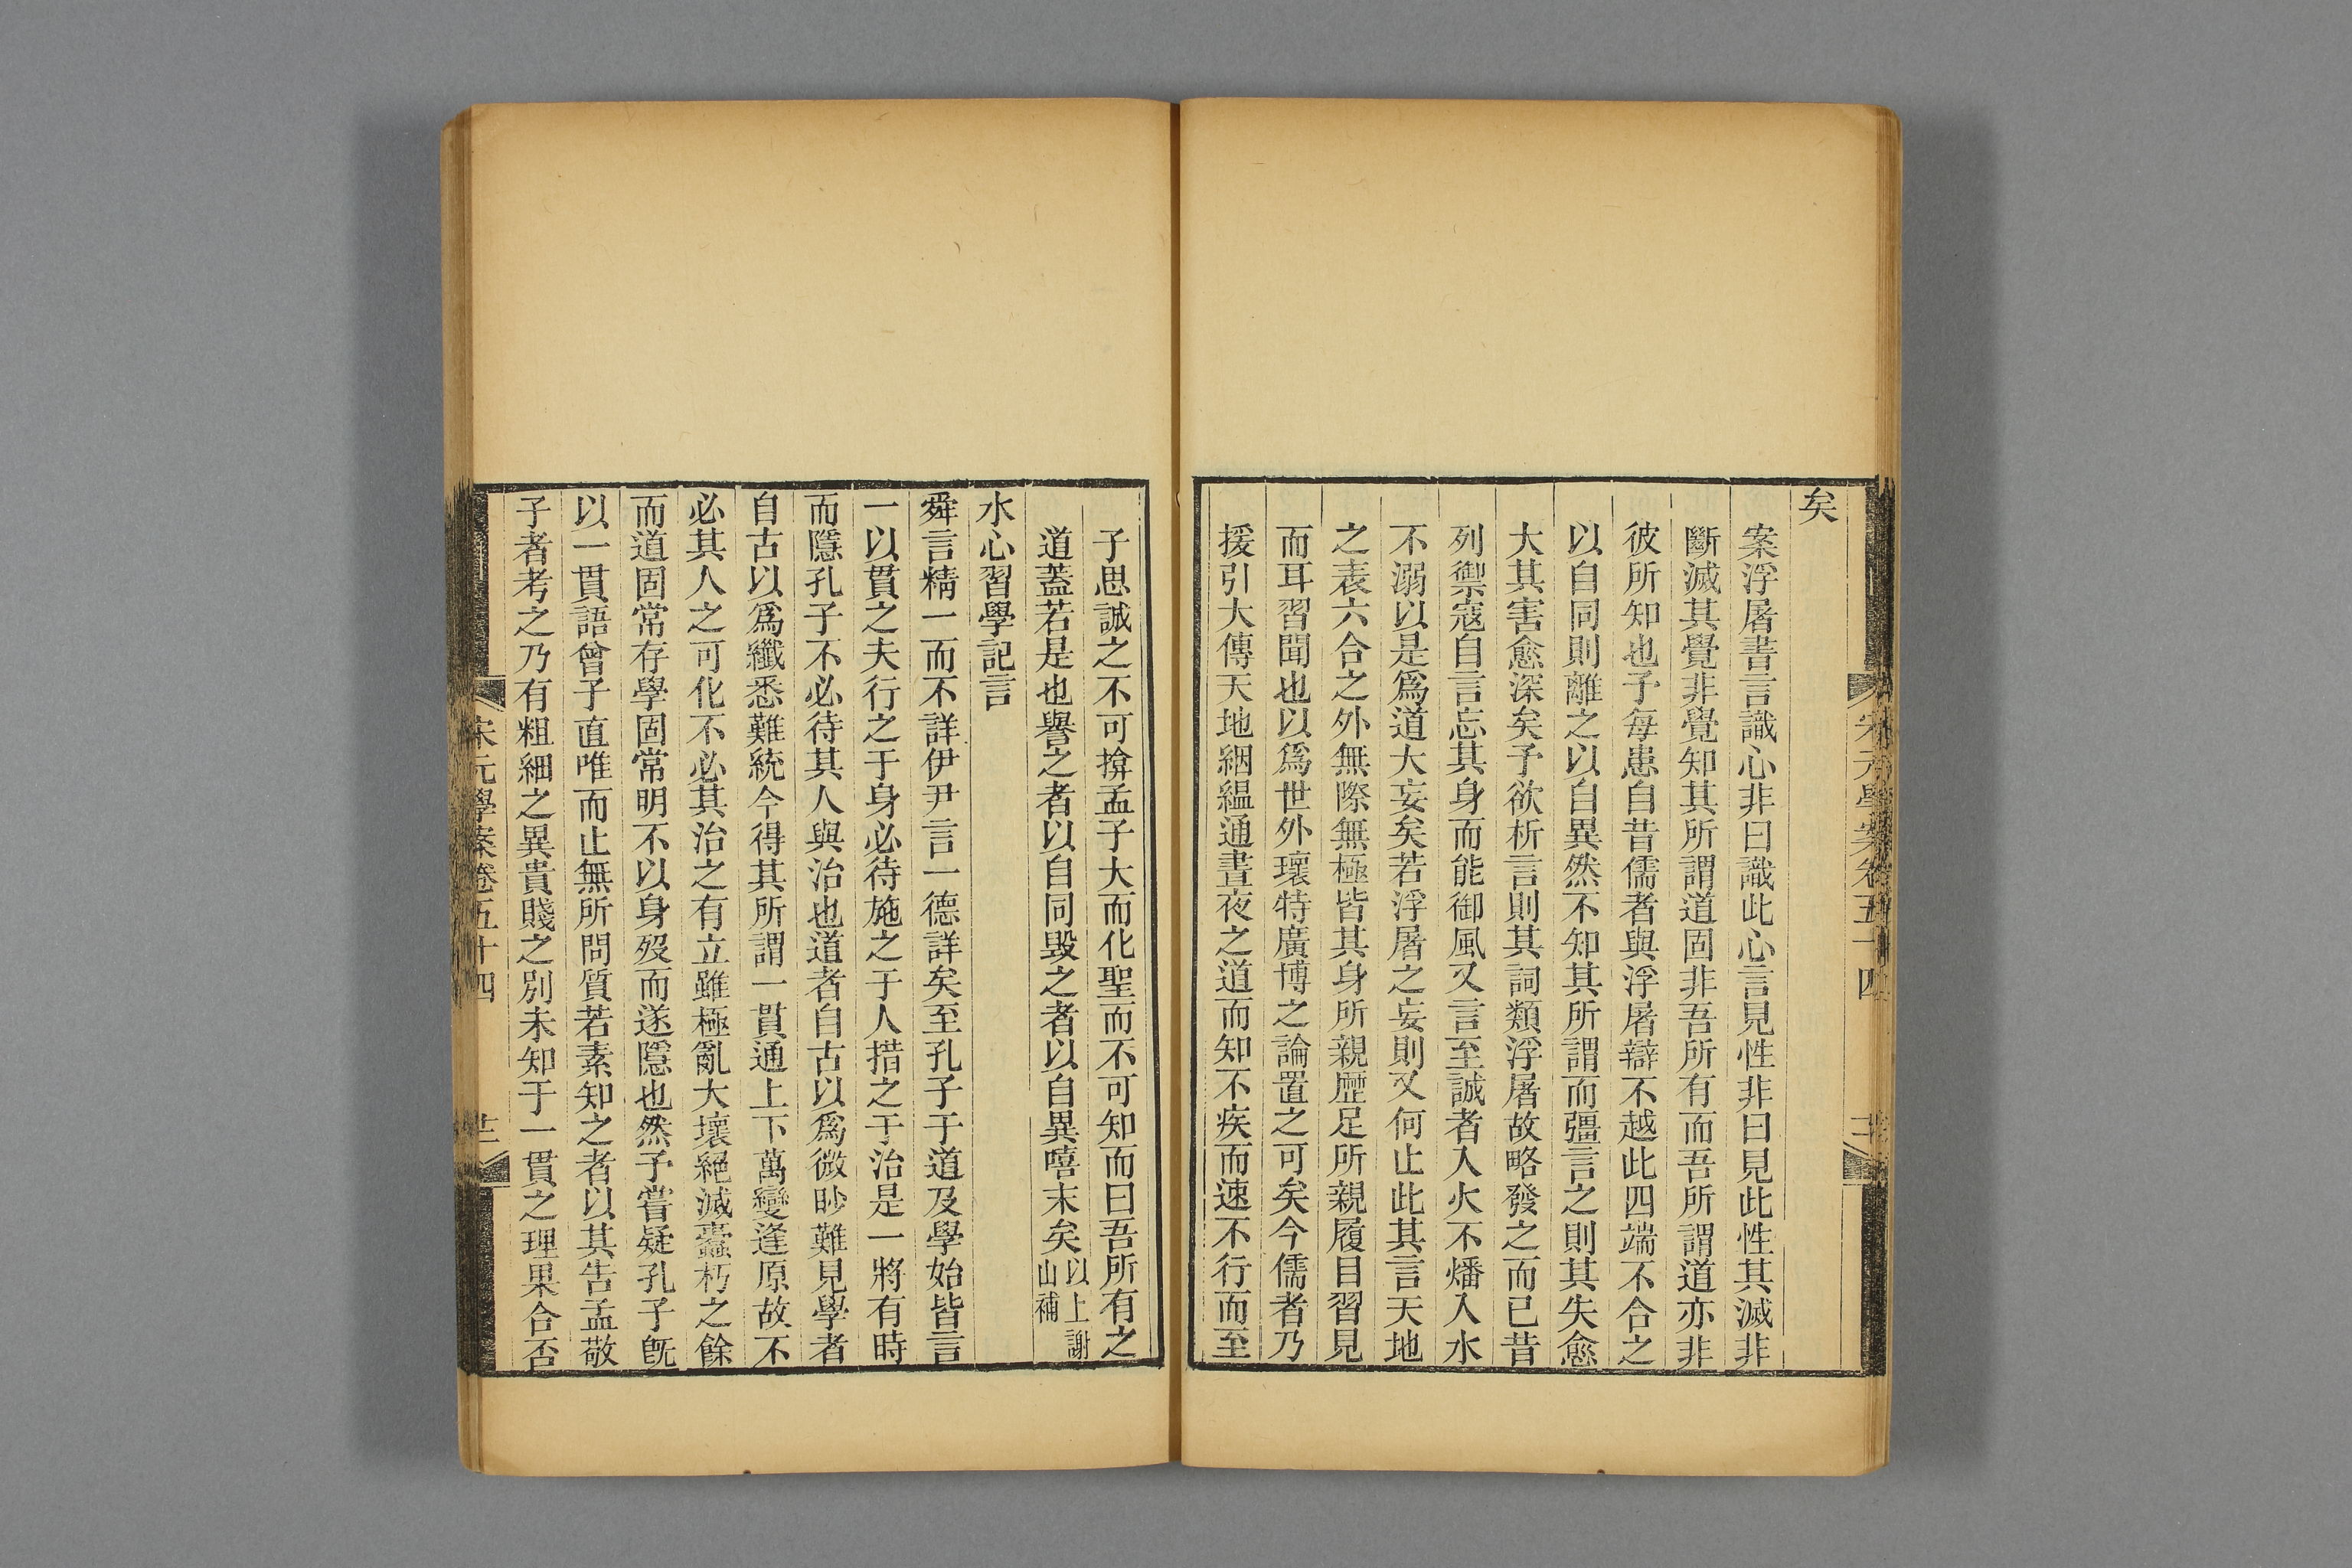 宋元學案卷五十四
矣
案浮屠書言識心非曰識此心言見性非曰見此性其滅非
斷滅其覺非覺知其所謂道固非吾所有而吾所謂道亦非
彼所知也予每患自昔儒者與浮屠辯不越此四端不合之
以自同則離之以自異然不知其所謂而彊言之則其失愈
大其害愈深矣予欲析言則其詞類浮屠故略發之而已昔
列禦寇自言忘其身而能御風又言至誠者入火不燔入水
不溺以是爲道大妄矣若浮屠之妄則又何止此其言天地
之表六合之外無際無極皆其身所親歷足所親履目習見
而耳習聞也以爲世外瓌特廣博之論置之可矣今儒者乃
援引大傳天地絪縕通晝夜之道而知不疾而速不行而至
子思誠之不可揜孟子大而化聖而不可知而曰吾所有之
道蓋若是也譽之者以自同毀之者以自異嘻末矣以上謝山補
水心習學記言
舜言精一而不詳伊尹言一德詳矣至孔子于道及學始皆言
一以貫之夫行之于身必待施之于人措之于治是一將有時
而隱孔子不必待其人與治也道者自古以爲微眇難見學者
自古以爲纖悉難統今得其所謂一貫通上下萬變逢原故不
必其人之可化不必其治之有立雖極亂大壞絕滅蠹朽之餘
而道固常存學固常明不以身歿而遂隱也然予嘗疑孔子旣
以一貫語曾子直唯而止無所問質若素知之者以其吿孟敬
子者考之乃有粗細之異貴賤之別未知于一貫之理果合否
宋元學案卷五十四